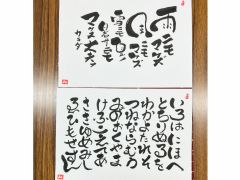 雨ニモ
マケズ
風ニモ
マケズ
雪ニモ夏ノ
暑サニモ
マケヌ丈夫ナ
カラダ
いろはにほへ
とちりぬるを
わかよたれそ
つねならむう
ゐのおくやま
けふこえてあ
さきゆめみし
ゑひもせすん